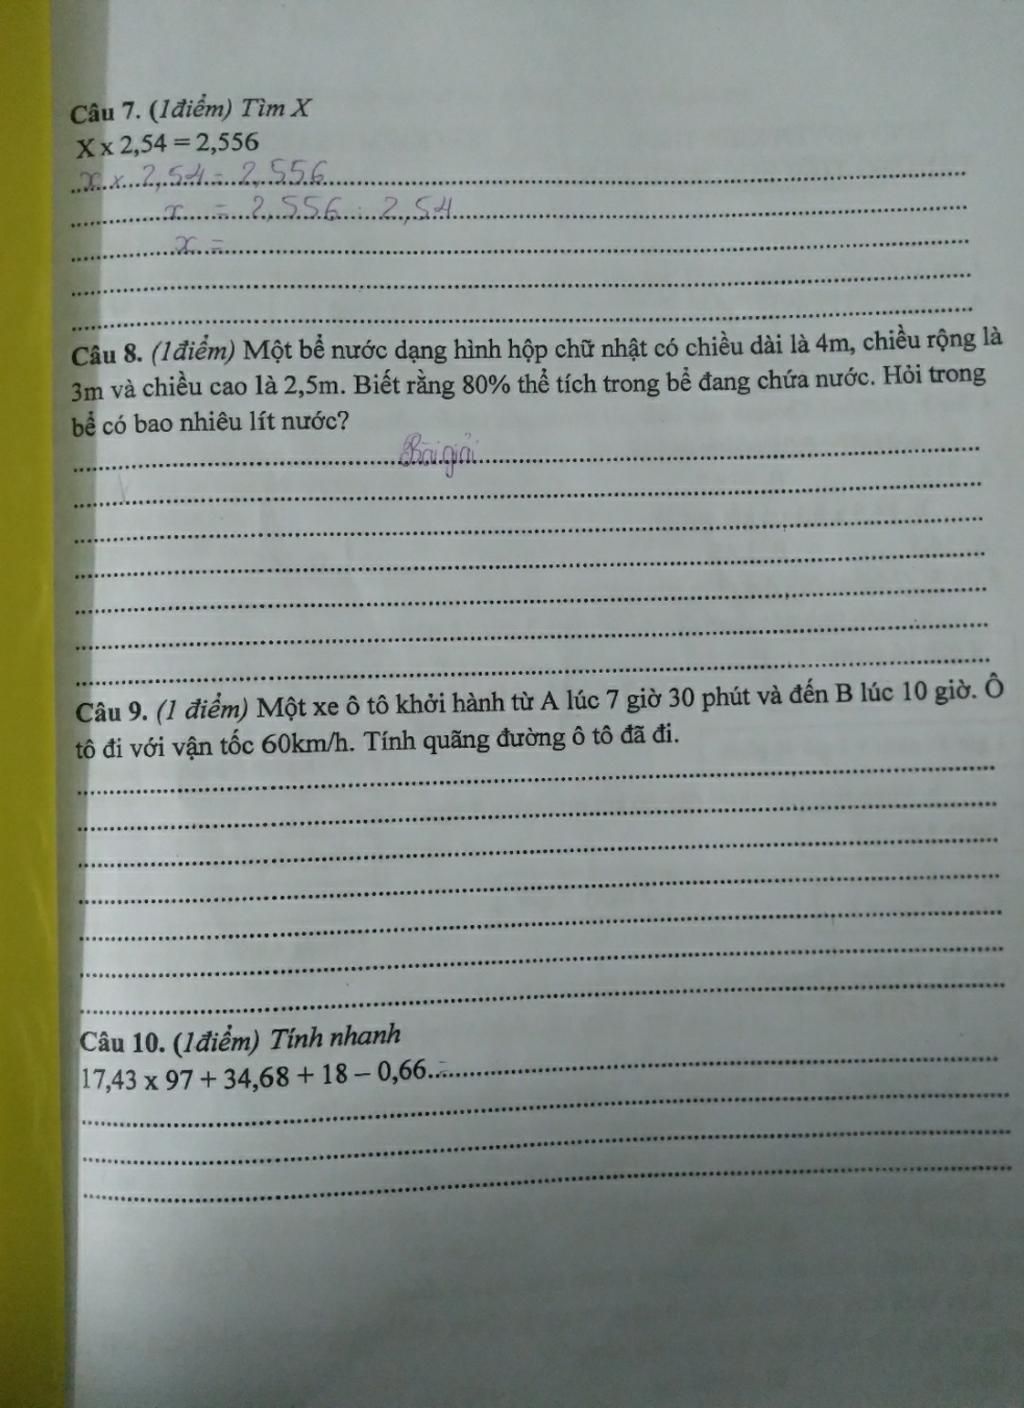 Câu 7. (1điểm) Tìm X
X x 2,54 = 2,556
x x 2,54 = 2,556
x = 2,556 : 2,54
x =
Câu 8. (1điểm) Một bể nước dạng hình hộp chữ nhật có chiều dài là 4m, chiều rộng là
3m và chiều cao là 2,5m. Biết rằng 80% thể tích trong bể đang chứa nước. Hỏi trong
bể có bao nhiêu lít nước?
Bài giải
Câu 9. (1 điểm) Một xe ô tô khởi hành từ A lúc 7 giờ 30 phút và đến B lúc 10 giờ. Ô
tô đi với vận tốc 60km/h. Tính quãng đường ô tô đã đi.
Câu 10. (1điểm) Tính nhanh
17,43 x 97 + 34,68 + 18 – 0,66